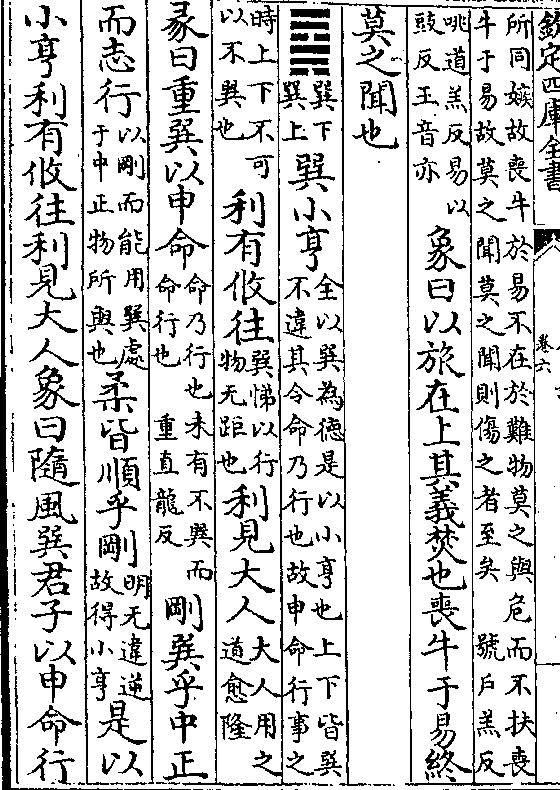 欽定四庫全書
卷六
所同嫉故喪牛於易不在於難物莫之與危而不扶喪
牛于易故莫之聞莫之聞則傷之者至矣 號戶羔反
咷道羔反易以
豉反王音亦
象曰以旅在上其義焚也喪牛于易終
莫之聞也
䷸
巽下
巽上
巽小亨
全以巽為德是以小亨也上下皆巽
不違其令命乃行也故申命行事之
時上下不可
以不巽也
利有攸往
巽悌以行
物无距也
利見大人
大人用之
道愈隆
彖曰重巽以申命
命乃行也未有不巽而
命行也 重直龍反
剛巽乎中正
而志行
以剛而能用巽處
于中正物所與也
柔皆順乎剛
明无違逆
故得小亨
是以
小亨利有攸往利見大人象曰隨風巽君子以申命行